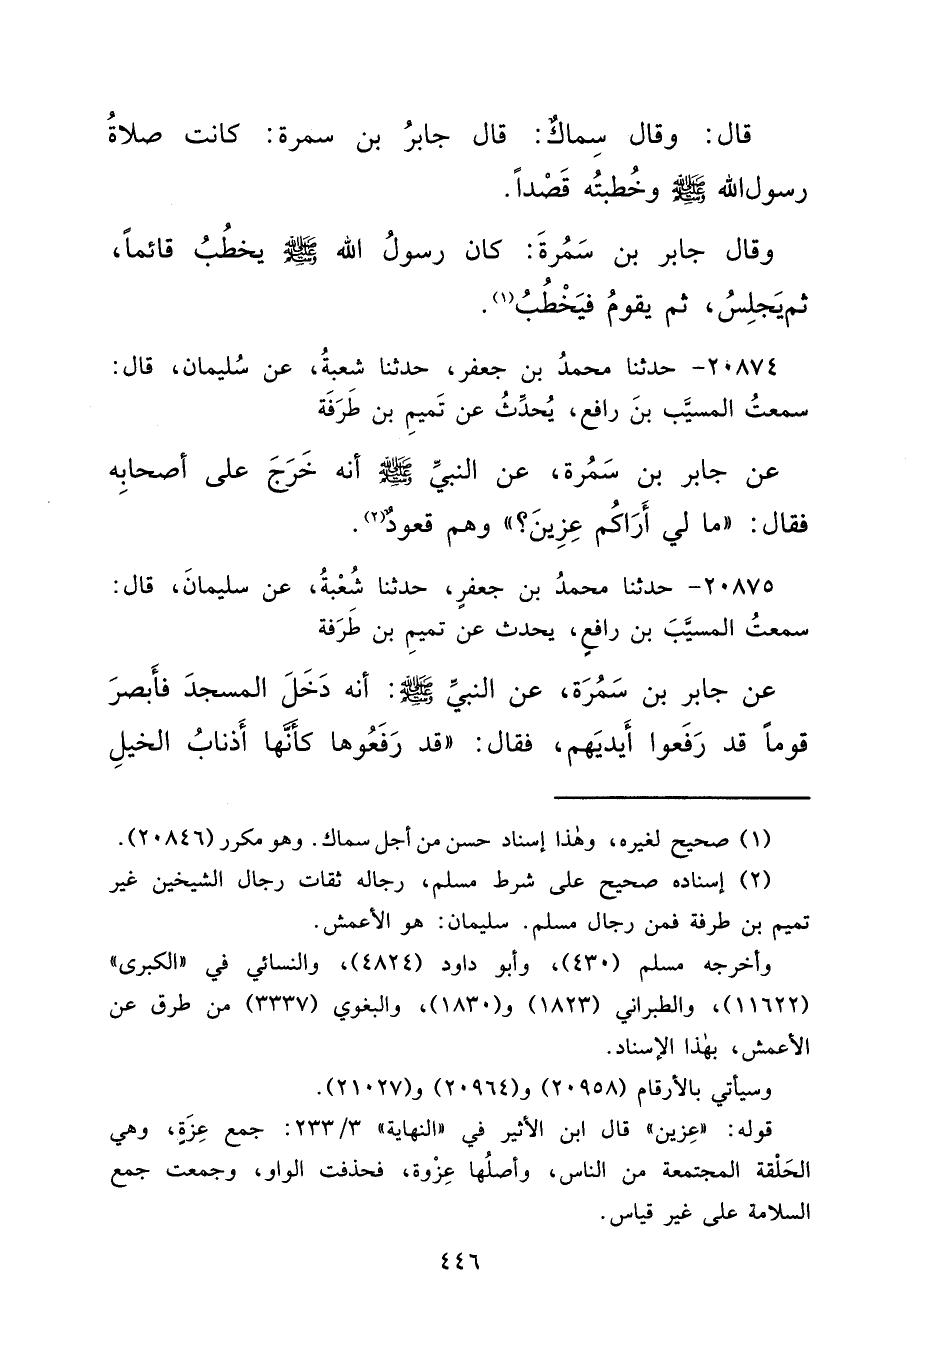 قال: وقال سِماكٌ: قال جابرُ بن سمرة: كانت صلاةُ
رسول الله ﷺ وخُطبتُه قَصْداً.
وقال جابر بن سَمُرةَ: كان رسولُ الله ﷺ يخطُبُ قائماً،
ثم يَجلِسُ، ثم يقومُ فيَخْطُبُ(١).
٢٠٨٧٤- حدثنا محمدُ بن جعفر، حدثنا شعبةُ، عن سُليمان، قال:
سمعتُ المسيَّب بنَ رافع، يُحدِّثُ عن تَميمِ بن طَرَفَة
عن جابر بن سَمُرة، عن النبيِّ ﷺ أنه خَرَجَ على أصحابِه
فقال: «ما لي أَرَاكُم عِزِينَ؟» وهم قعودٌ(٢).
٢٠٨٧٥- حدثنا محمدُ بن جعفرٍ، حدثنا شُعْبةُ، عن سليمانَ، قال:
سمعتُ المسيَّبَ بن رافعٍ، يحدث عن تميمِ بن طَرَفة
عن جابر بن سَمُرَة، عن النبيِّ ﷺ: أنه دَخَلَ المسجدَ فأَبصرَ
قوماً قد رَفَعوا أَيديَهم، فقال: «قد رَفَعُوها كأنَّها أَذنابُ الخيلِ
(١) صحيح لغيره، وهٰذا إسناد حسن من أجل سماك. وهو مكرر (٢٠٨٤٦).
(٢) إسناده صحيح على شرط مسلم، رجاله ثقات رجال الشيخين غير
تميم بن طرفة فمن رجال مسلم. سليمان: هو الأعمش.
وأخرجه مسلم (٤٣٠)، وأبو داود (٤٨٢٤)، والنسائي في «الكبرى»
(١١٦٢٢)، والطبراني (١٨٢٣) و(١٨٣٠)، والبغوي (٣٣٣٧) من طرق عن
الأعمش، بهٰذا الإسناد.
وسيأتي بالأرقام (٢٠٩٥٨) و(٢٠٩٦٤) و(٢١٠٢٧).
قوله: «عِزين» قال ابن الأثير في «النهاية» ٢٣٣/٣: جمع عِزَةٍ، وهي
الحَلْقة المجتمعة من الناس، وأصلُها عِزْوة، فحذفت الواو، وجمعت جمع
السلامة على غير قياس.
٤٤٦